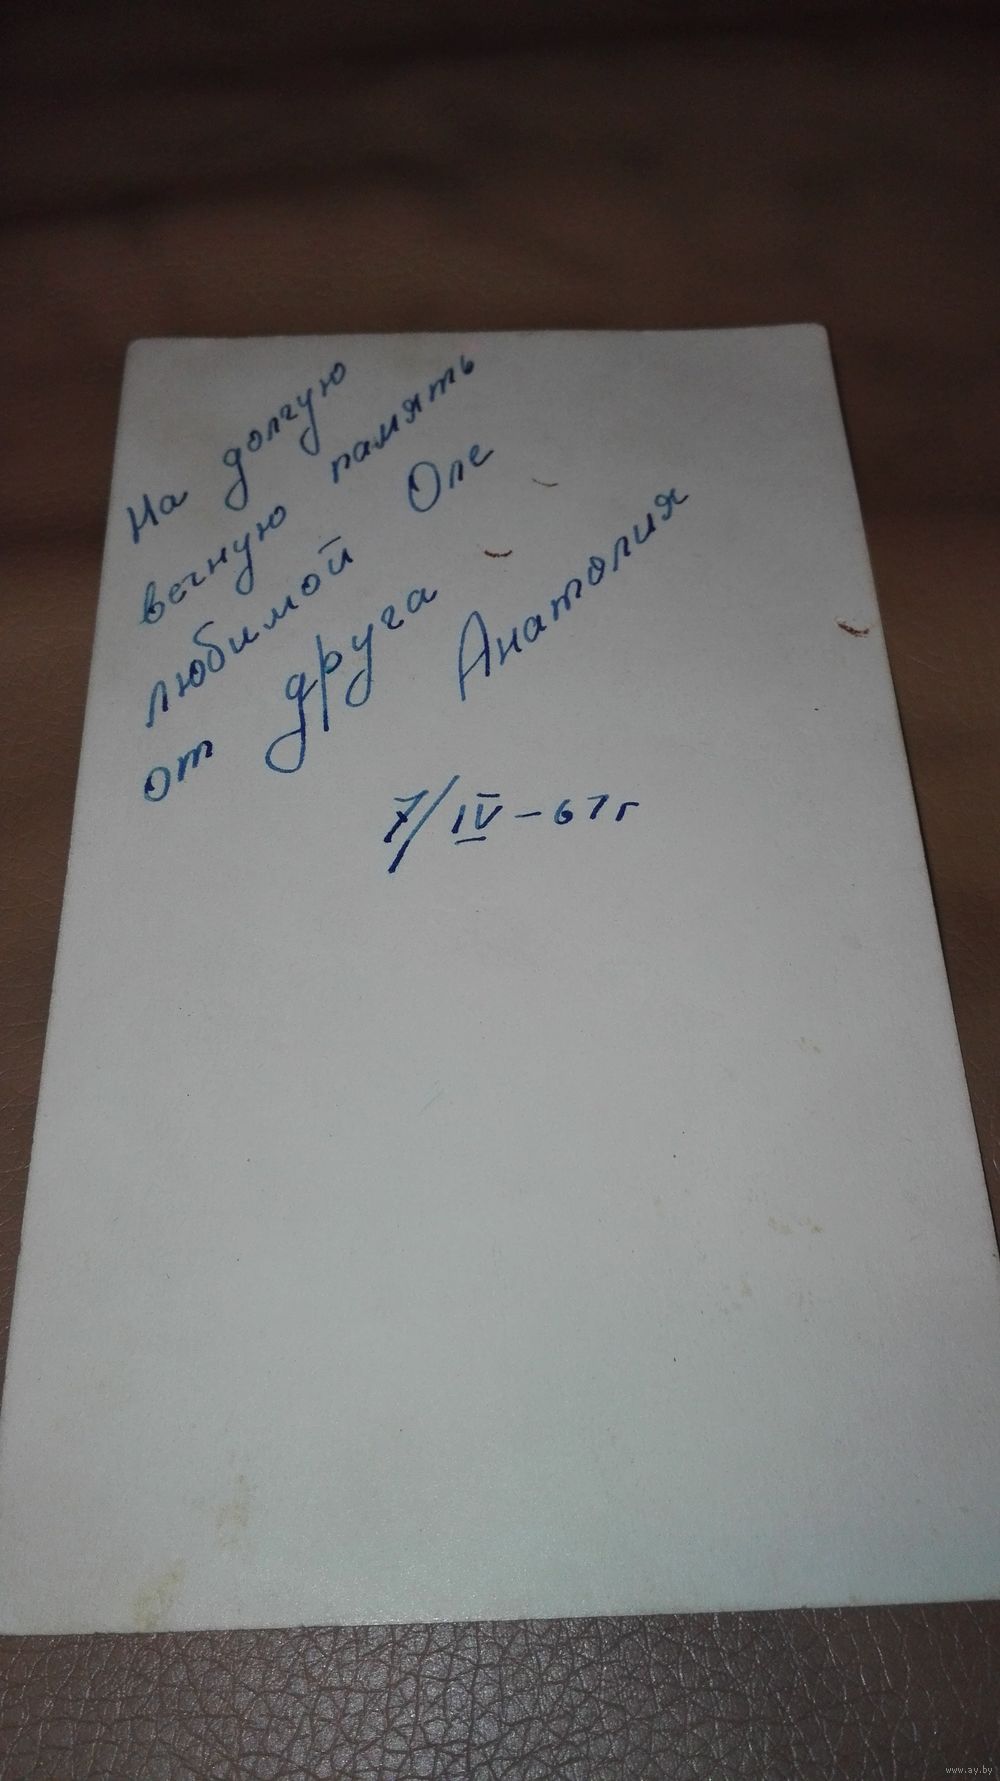 На долгую
вечную память
любимой Оле
от друга Анатолия
7/IV – 67 г
www.ay.by